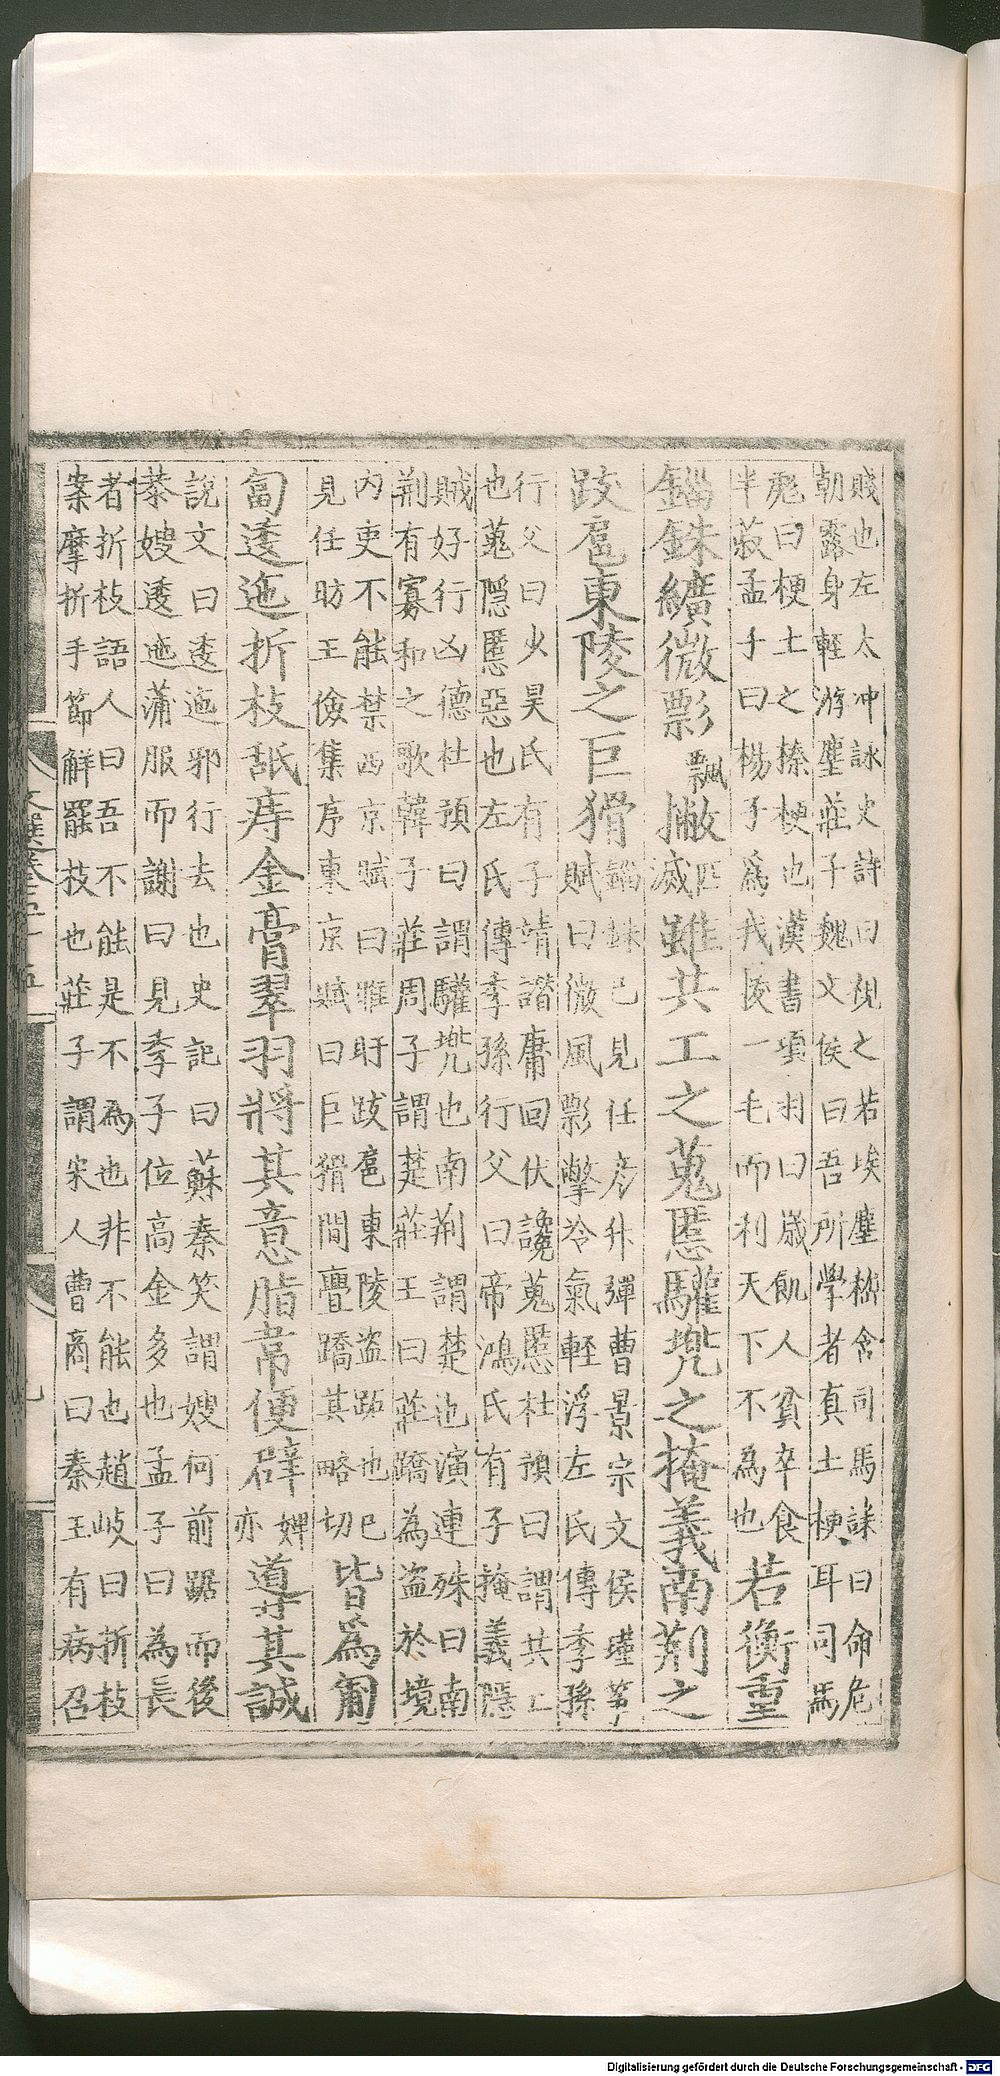 賤也左太冲詠史詩曰視之若埃塵嵇含司馬誄曰命危
朝露身輕游塵莊子魏文侯曰吾所學者真土梗耳司馬
彪曰梗土之榛梗也漢書項羽曰歲飢人貧卒食
半菽孟子曰楊子爲我拔一毛而利天下不為也
若衡重
錙銖纊微彯
飄
撇
匹
滅
雖共工之蒐慝驩兠之掩義南荆之
跋扈東陵之巨猾
錙銖已見任彦升彈曹景宗文侯瑾筝
賦曰微風彯擎冷氣輕浮左氏傳季孫
行父曰少昊氏有子靖譖庸回伏讒蒐慝杜預曰謂共工
也蒐隠慝惡也左氏傳季孫行父曰帝鴻氏有子掩義隠
賊好行凶德杜預曰謂驩兠也南荆謂楚也演連殊曰南
荆有寡和之歌韓子莊周子謂楚莊王曰莊蹻為盗於境
内吏不能禁西京賦曰睢盱跋扈東陵盗跖也已
見任昉王儉集序東京賦曰巨猾間舋蹻其略切
皆爲匍
匐逶迤折枝舐痔金膏翠羽將其意脂韋便辟
婢
亦
導其誠
說文曰逶迤邪行去也史記曰蘇秦笑謂嫂何前踞而後
恭嫂逶迤蒲服而謝曰見季子位高金多也孟子曰為長
者折枝語人曰吾不能是不為也非不能也趙岐曰折枝
案摩折手節解罷技也莊子謂宋人曹商曰秦王有病召
文選卷五十五
九
Digitalisierung gefördert durch die Deutsche Forschungsgemeinschaft - DFG